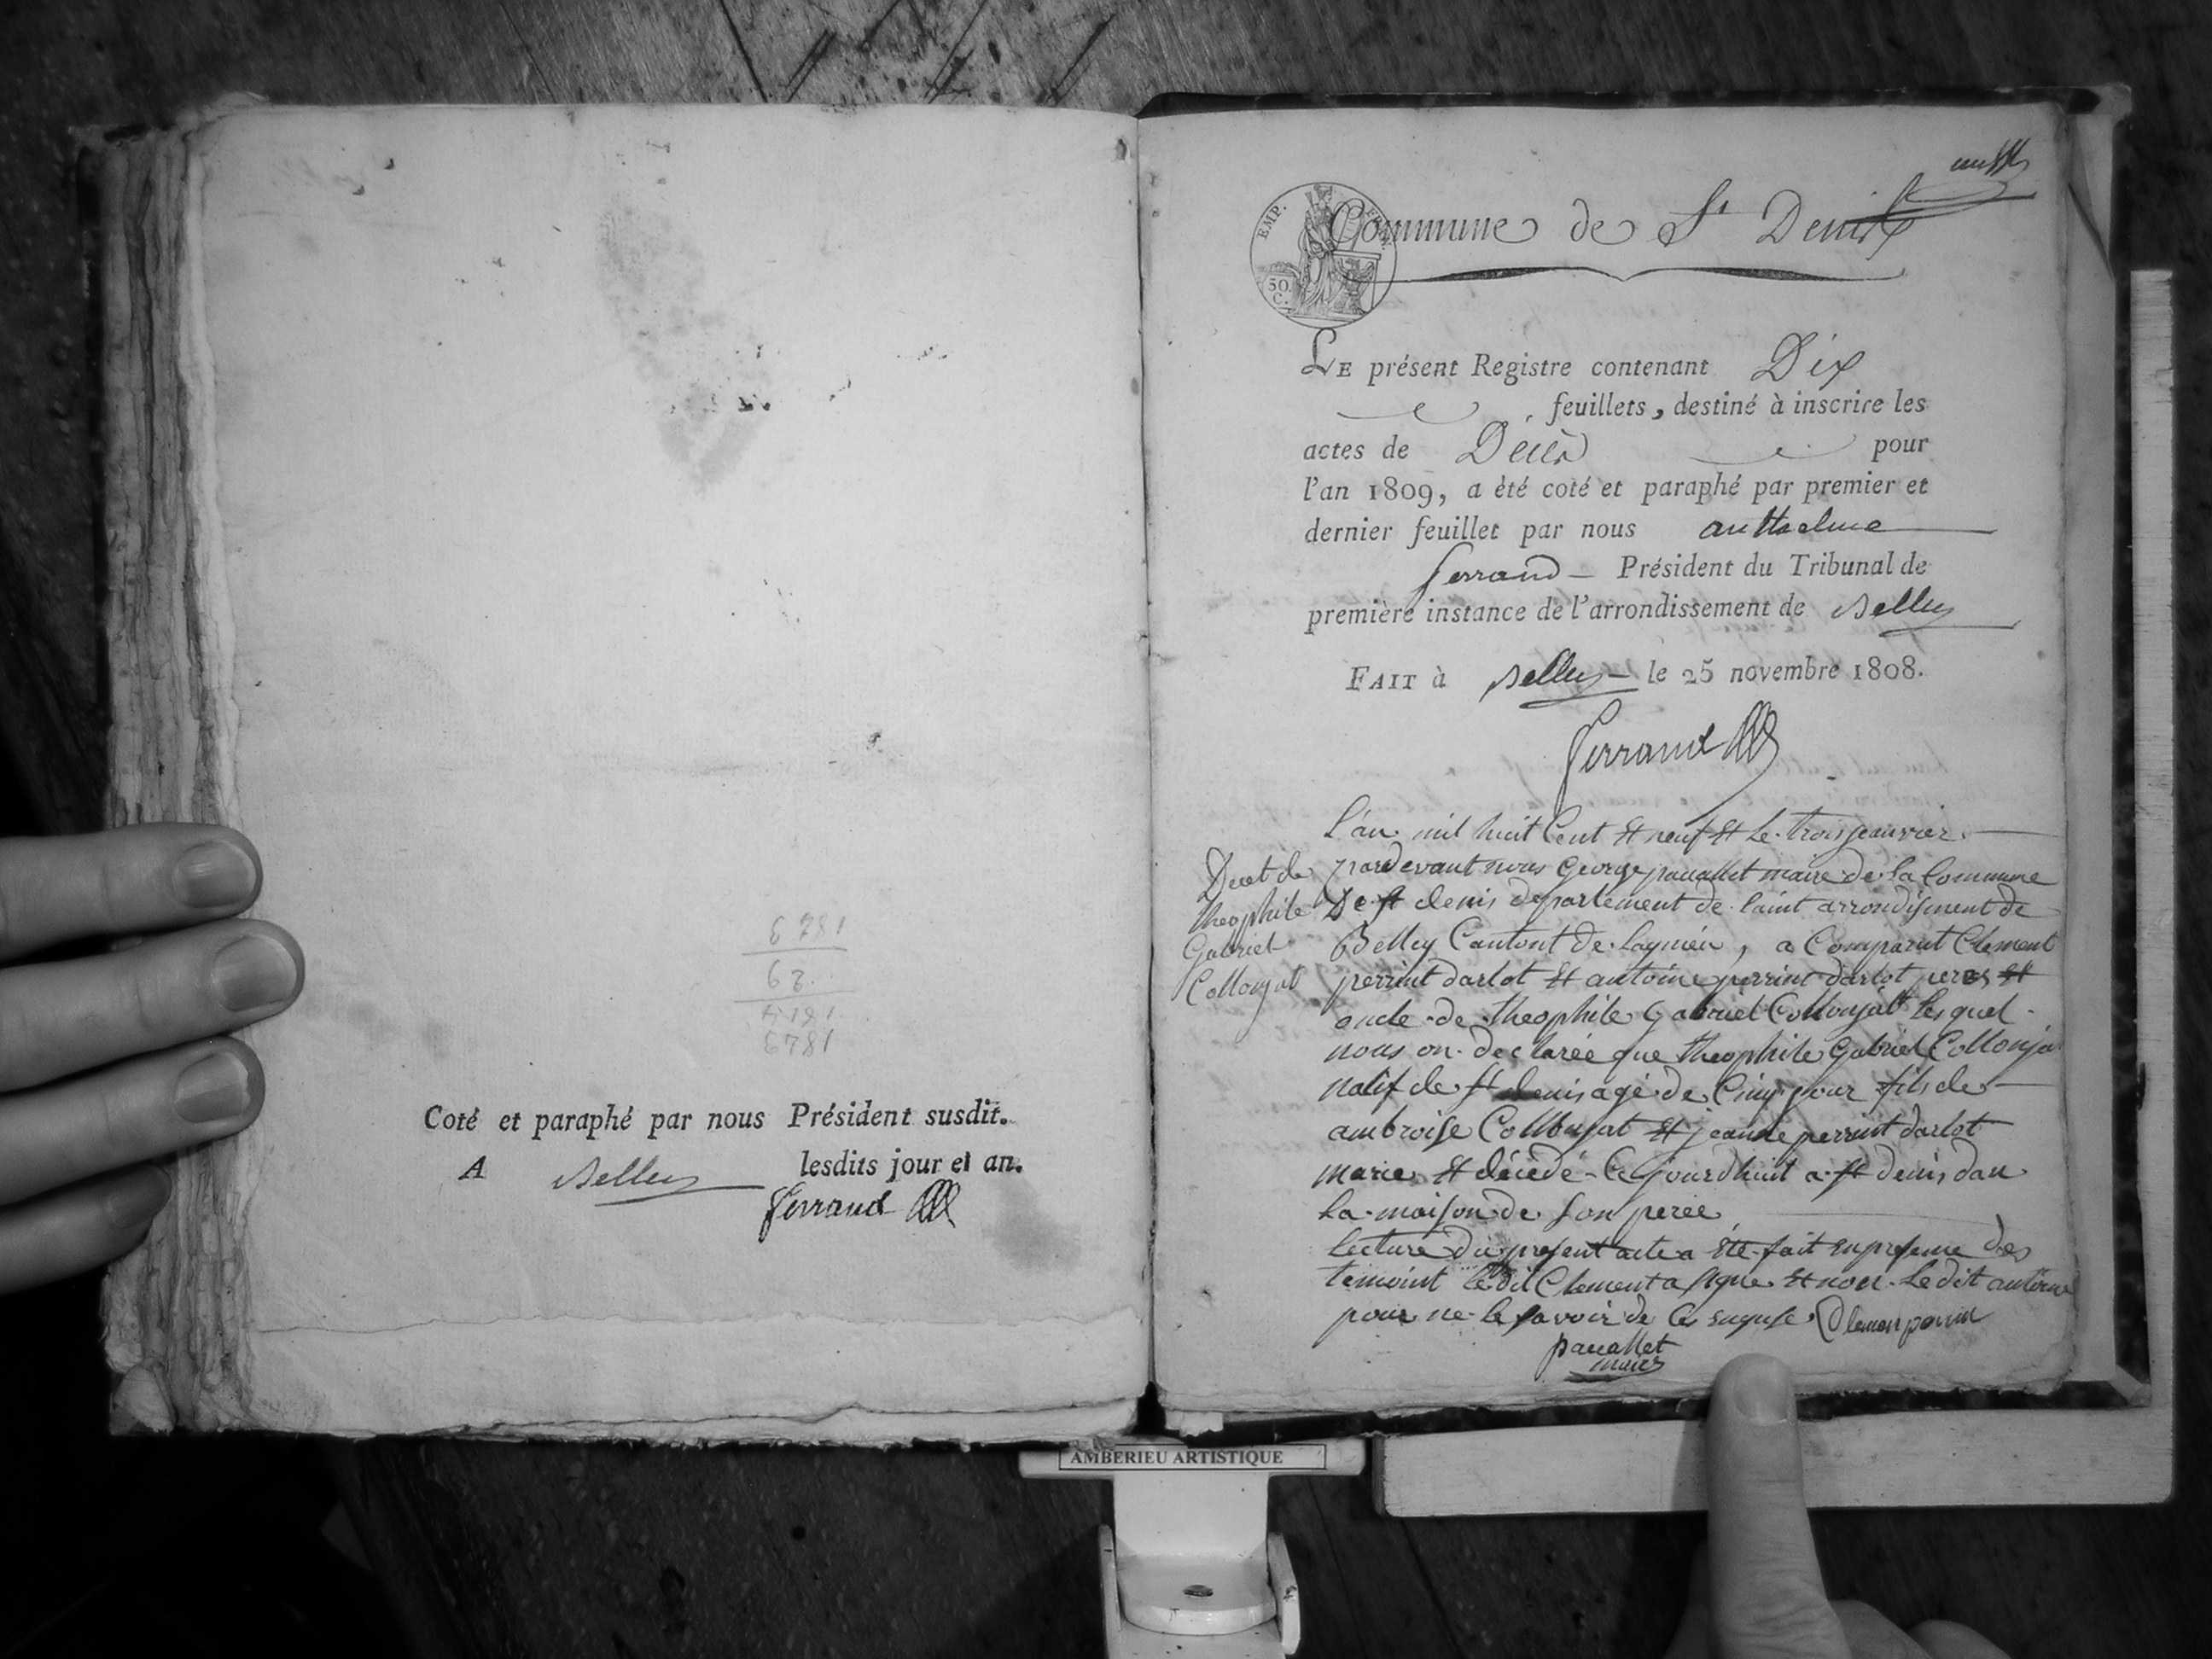 Coté et paraphé par nous Président susdit.
A Belley lesdits jour et an.
Ferrand
Commune de St Denis
EMP. FRAN.
50. C.
LE présent Registre contenant Dix
feuillets, destiné à inscrire les
actes de Décès pour
l'an 1809, a été coté et paraphé par premier et
dernier feuillet par nous anthelme
ferrand — Président du Tribunal de
première instance de l'arrondissement de Belley
FAIT à Belley le 25 novembre 1808.
Ferrand
L'an mil huit Cent et neuf et le trois jeanvier
pardevant nous George pauallet maire de la Commune
De st denis departement de laint arrondisment de
Belley Cantont de lagnieu, a Comparut Clement
perrint darlot et antoine perrint darlot peres et
oncle de theophile Gabriel Collonjat lesquel
nous on declarée que theophile Gabriel Collonja
natif de st denis agé de Cinq jour fils de
ambroise Collonjat et jeanne perrint darlot
marie et décédé Ce jourdhuit a st denis dan
la maison de son peree
lecture du present acte a été fait en presence des
temoint le dit Clement a signe et non le dit antoine
pour ne le savoir de Ce enquise. Clemen perrin
pauallet
maire
Decet de
theophile
Gabriel
Collonjat
AMBERIEU ARTISTIQUE